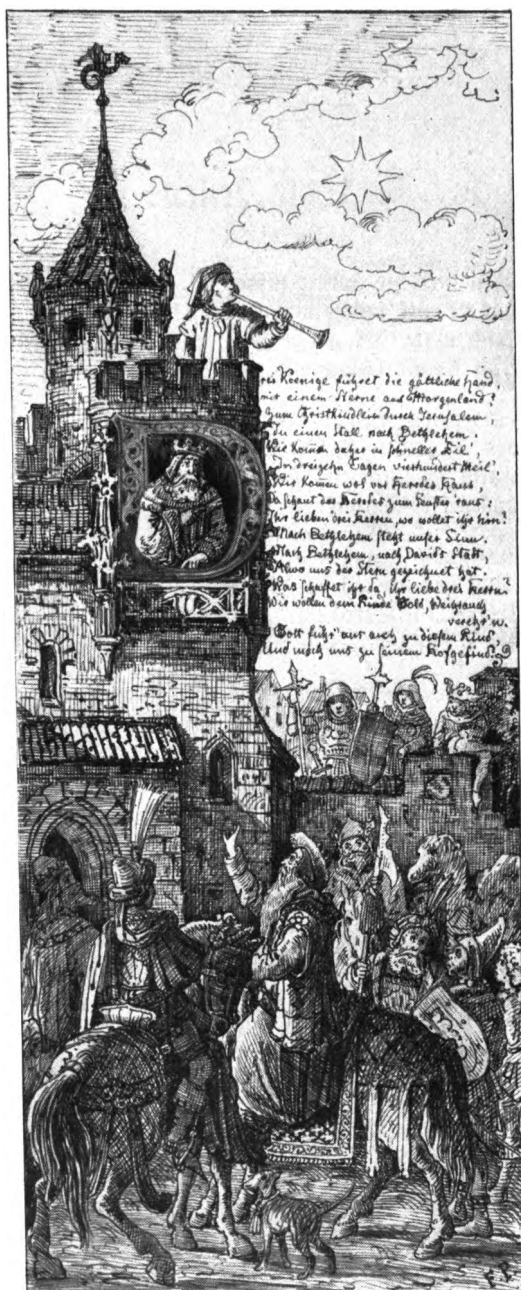 Drei Koenige führet die göttliche Hand,
mit einem Sterne aus Morgenland!
Zum Christkindlein durch Jerusalem,
In einen Stall nach Bethlehem.
Wir komen daher in schneller Eil',
In dreizehn Tagen vierhundert Meil'.
Wir komen wol vor Herodes Haus
Da schaut der Herodes zum Fenster raus:
Ihr lieben drei Herren, wo wollet ihr hin?
Nach Bethlehem steht unser Sinn.
Nach Bethlehem, nach Davids Statt,
Alwo uns der Stern gezeichnet hat.
Was schaffet ihr da, ihr liebe drei Herrn?
Wir wollen dem Kinde Gold, Weihrauch
verehr'n.
Gott führ' uns auch zu diesem Kind,
Und mach uns zu seinem Hofgesind!
F.P.